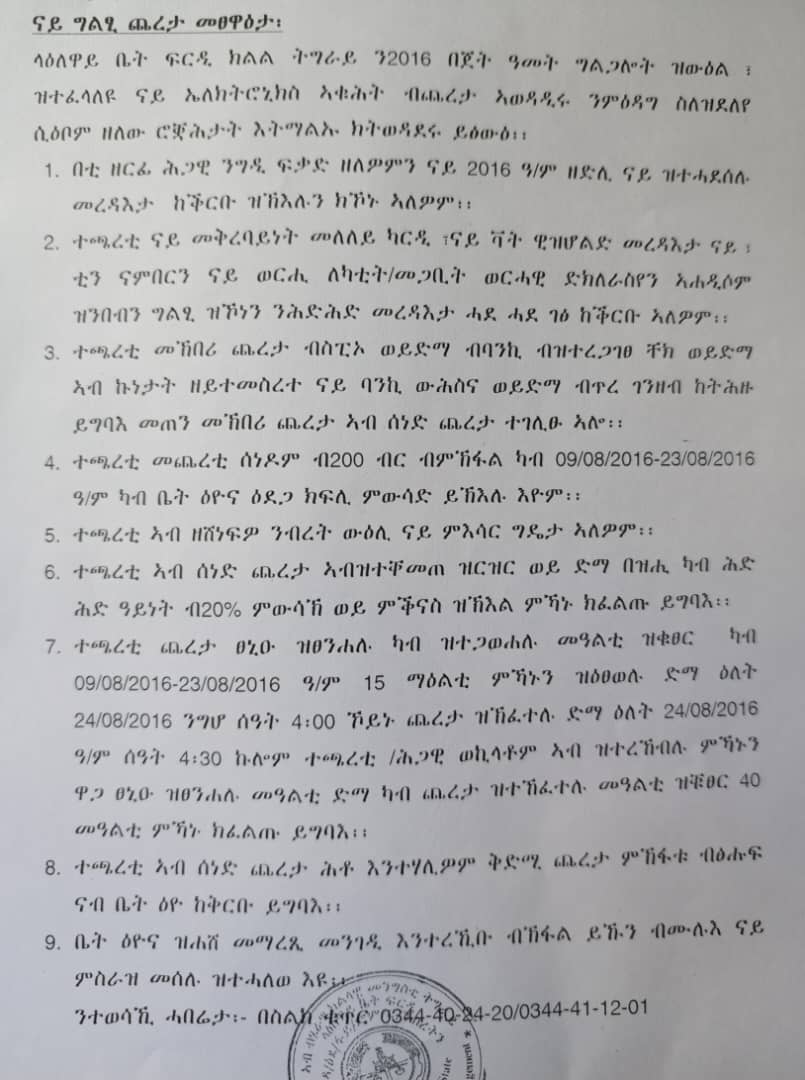 ናይ ግልፂ ጨረታ መፀዋዕታ፡
ላዕለዋይ ቤት ፍርዲ ክልል ትግራይ ን2016 በጀት ዓመት ግልጋሎት ዝውዕል ፣
ዝተፈላለዩ ናይ ኤለክትሮኒክስ ኣቁሑት ብጨረታ ኣወዳዲሩ ንምዕዳግ ስለዝደለየ
ሲዒቦም ዘለው ሮቛሕታት እትማልኡ ክትወዳደሩ ይዕውዕ፡፡
1. በቲ ዘርፊ ሕጋዊ ንግዲ ፍቃድ ዘለዎምን ናይ 2016 ዓ/ም ዘድሊ ናይ ዝተሓደሰሉ
መረዳእታ ከቕርቡ ዝኽእሉን ክኾኑ ኣለዎም፡፡
2. ተጫረቲ ናይ መቅረባይነት መለለይ ካርዲ ፣ናይ ቫት ዊዝሆልድ መረዳእታ ናይ ፣
ቲን ናምበርን ናይ ወርሒ ለካቲት/መጋቢት ወርሓዊ ድክለራስየን ኣሐዲሶም
ዝንበብን ግልፂ ዝኾነን ንሕድሕድ መረዳእታ ሓደ ሓደ ገፅ ከቕርቡ ኣለዎም፡፡
3. ተጫረቲ መኽበሪ ጨረታ ብስፒኦ ወይድማ ብባንኪ ብዝተረጋገፀ ቸክ ወይድማ
ኣብ ኩነታት ዘይተመስረተ ናይ ባንኪ ውሕስና ወይድማ ብጥረ ገንዘብ ከትሕዙ
ይግባእ መጠን መኽበሪ ጨረታ ኣብ ሰነድ ጨረታ ተገሊፁ ኣሎ፡፡
4. ተጫረቲ መጨረቲ ሰነዶም ብ200 ብር ብምኽፋል ካብ 09/08/2016-23/08/2016
ዓ/ም ካብ ቤት ዕዮና ዕደጋ ክፍሊ ምውሳድ ይኽእሉ እዮም፡፡
5. ተጫረቲ ኣብ ዘሸነፍዎ ንብረት ውዕሊ ናይ ምእሳር ግዴታ ኣለዎም፡፡
6. ተጫረቲ ኣብ ሰነድ ጨረታ ኣብዝተቐመጠ ዝርዝር ወይ ድማ በዝሒ ካብ ሕድ
ሕድ ዓይነት ብ20% ምውሳኽ ወይ ምቕናስ ዝኽእል ምኻኑ ክፈልጡ ይግባእ፡፡
7. ተጫረቲ ጨረታ ፀኒዑ ዝፀንሐሉ ካብ ዝተጋወሐሉ መዓልቲ ዝቁፀር ካብ
09/08/2016-23/08/2016 ዓ/ም 15 ማዕልቲ ምኻኑን ዝዕፀወሉ ድማ ዕለት
24/08/2016 ንግሆ ሰዓት 4፡00 ኾይኑ ጨረታ ዝኽፈተሉ ድማ ዕለት 24/08/2016
ዓ/ም ሰዓት 4፡30 ኩሎም ተጫረቲ /ሕጋዊ ወኪላቶም ኣብ ዝተረኽብሉ ምኻኑን
ዋጋ ፀኒዑ ዝፀንሐሉ መዓልቲ ድማ ካብ ጨረታ ዝተኸፈተሉ መዓልቲ ዝቑፀር 40
መዓልቲ ምኻኑ ክፈልጡ ይግባእ፡፡
8. ተጫረቲ ኣብ ሰነድ ጨረታ ሕቶ እንተሃሊዎም ቅድሚ ጨረታ ምኽፋቱ ብፅሑፍ
ናብ ቤት ዕዮ ከቅርቡ ይግባእ፡፡
9. ቤት ዕዮና ዝሐሸ መማረፂ መንገዲ እንተረኺቡ ብኽፋል ይኹን ብሙሉእ ናይ
ምስራዝ መሰሉ ዝተሓለወ እዩ፡፡
ንተወሳኺ ሓበሬታ፡- በስልክ ቁጥር 0344-40-24-20/0344-41-12-01